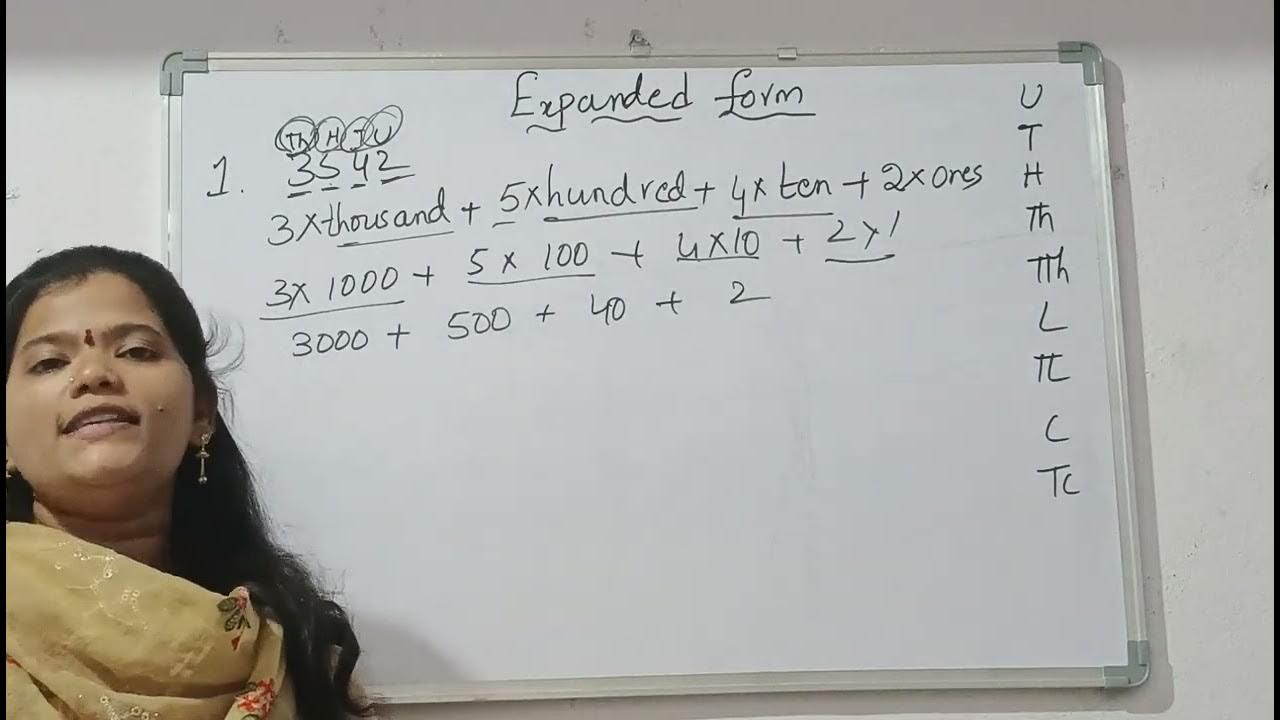 Expanded form
Th H T U
1. 3542
3×thousand + 5×hundred + 4×ten + 2×ones
3×1000 + 5×100 + 4×10 + 2×1
3000 + 500 + 40 + 2
U
T
H
Th
TTh
L
TL
C
TC